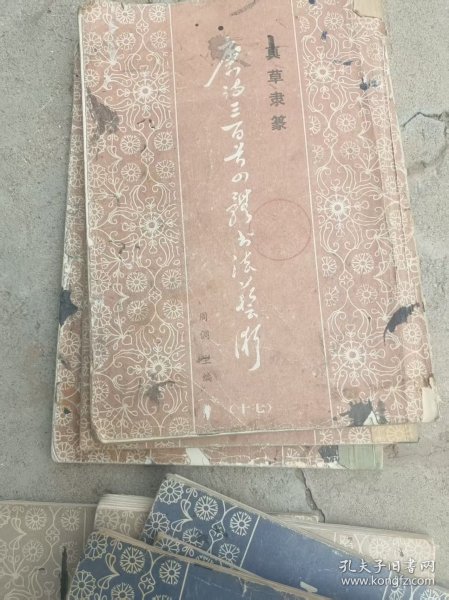 真草隶篆
唐诗三百首四体书法艺术
周倜主编
(十七)
孔夫子旧书网
www.kongfz.com